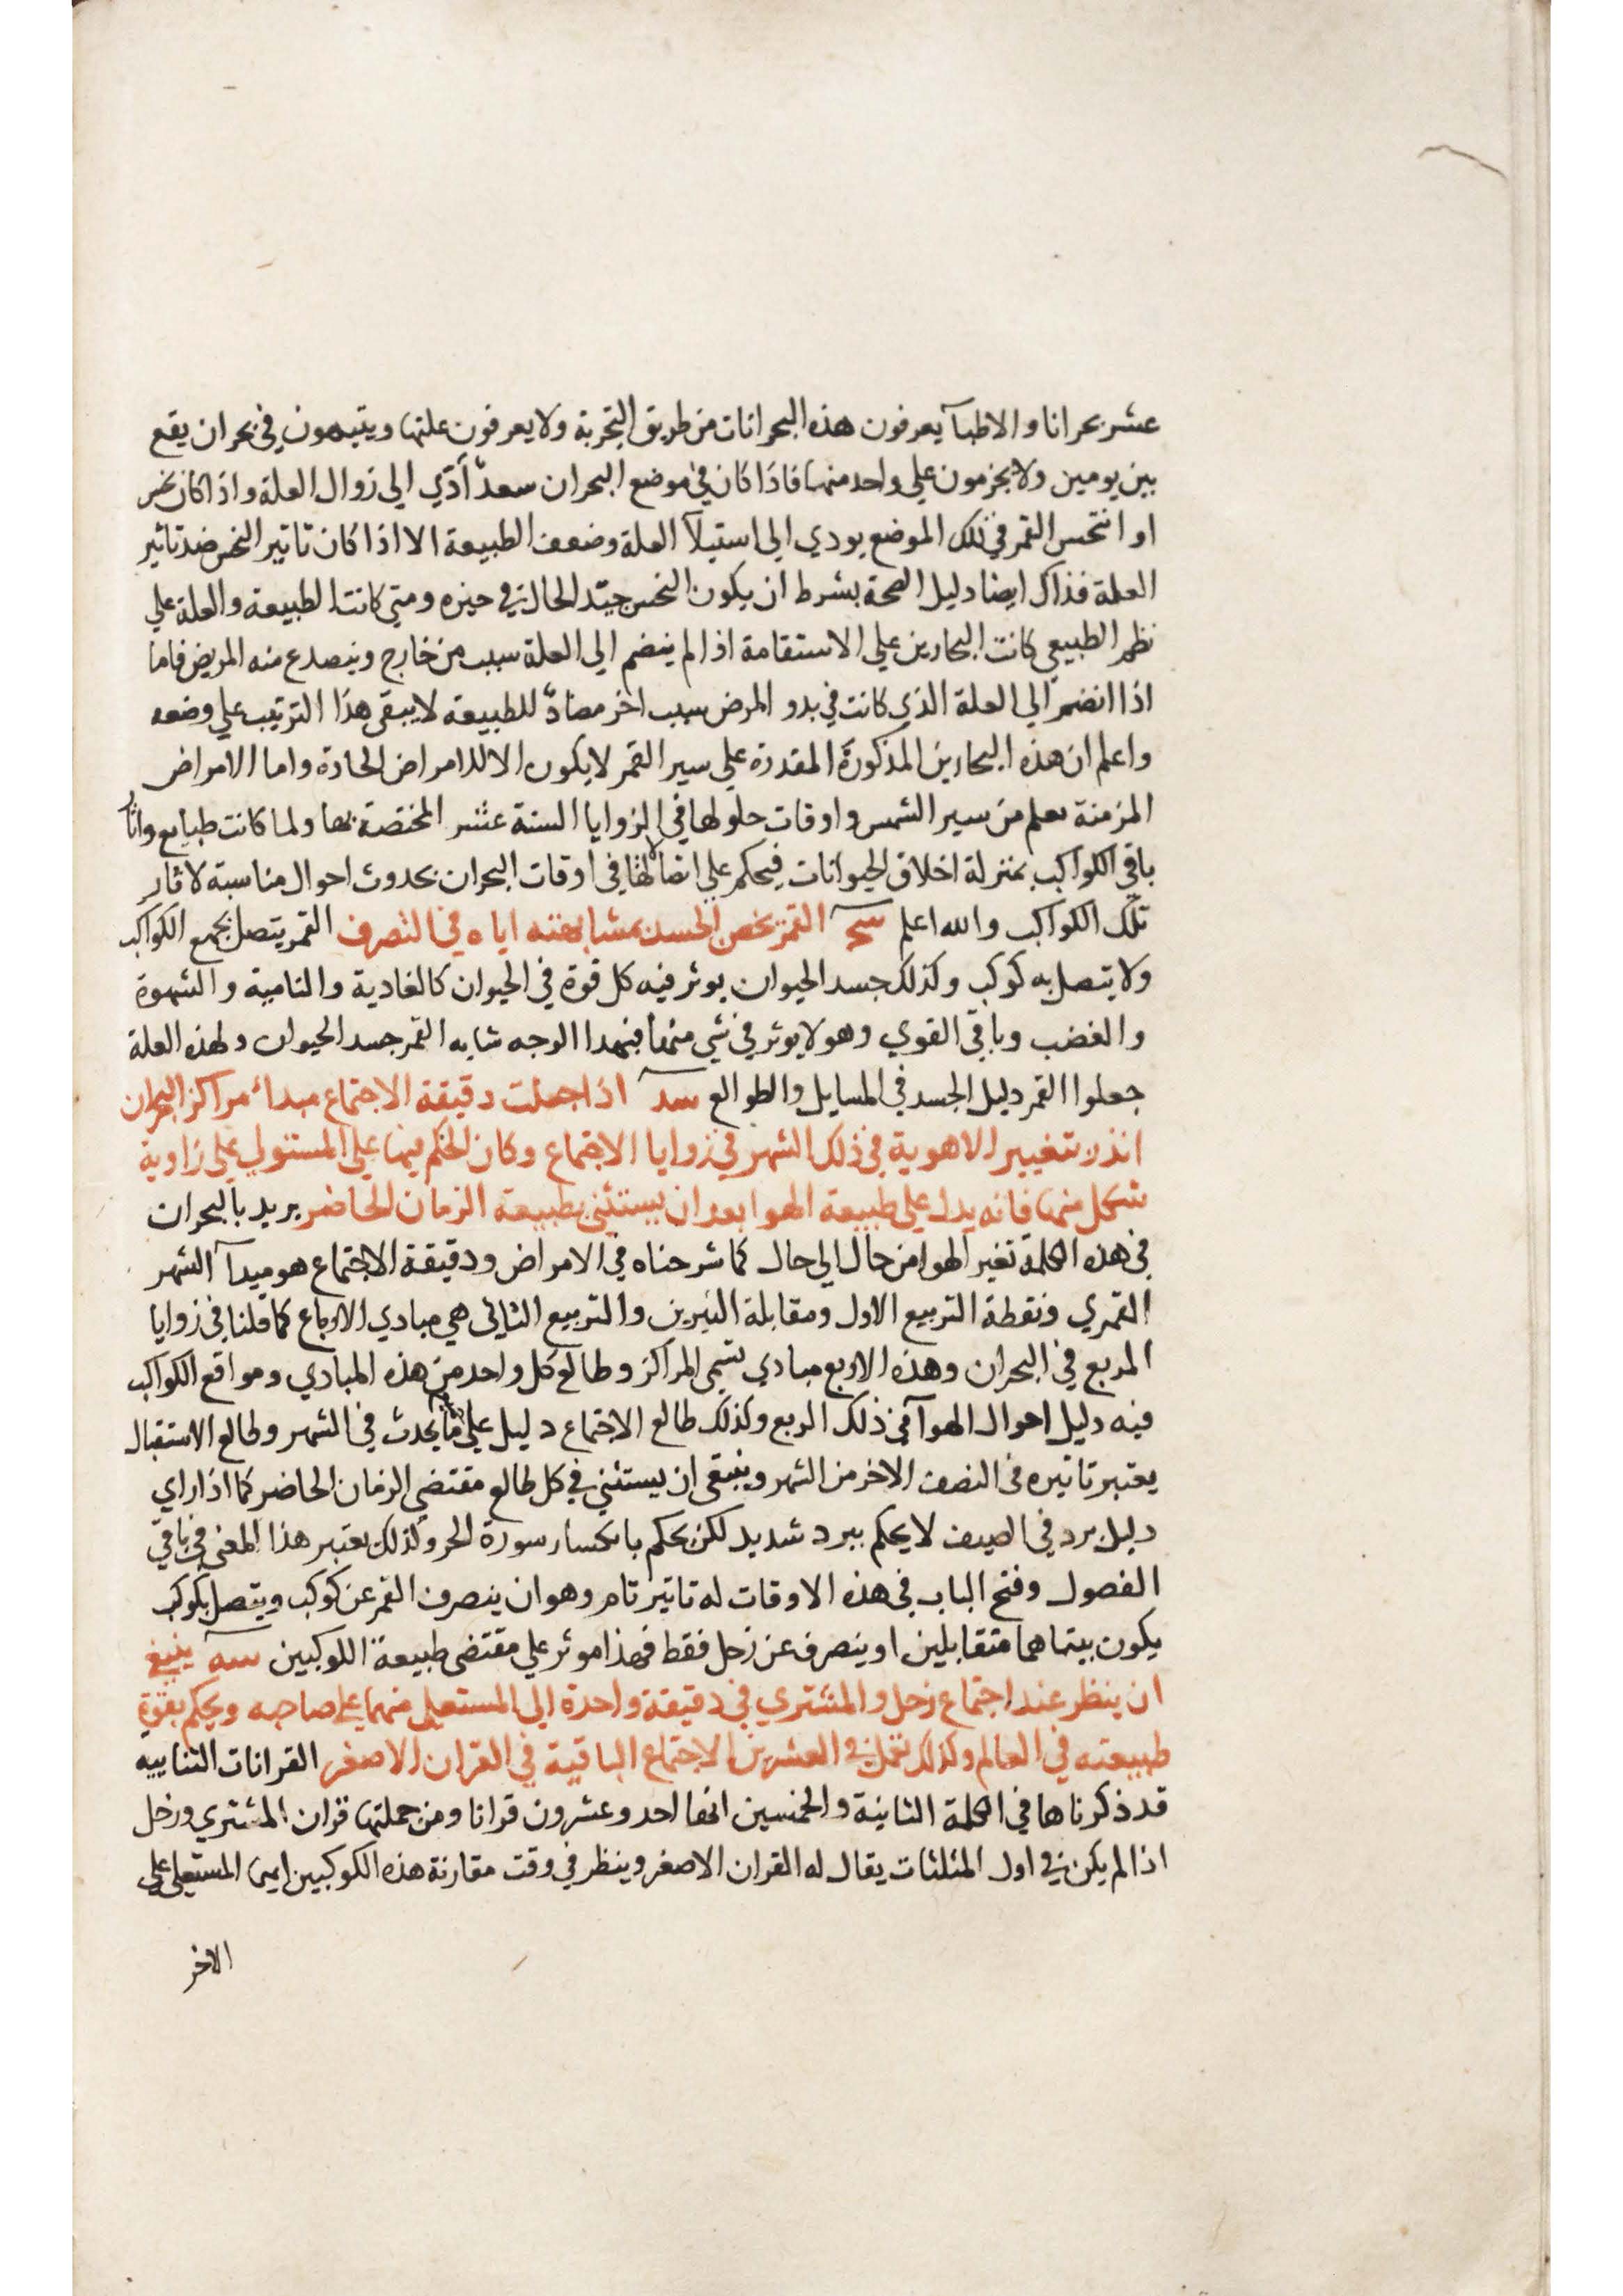 عشر بحرانا والاطبآ يعرفون هذه البحرانات من طريق التجربة ولا يعرفون علتها ويتبهون في بحران يقع
بين يومين ولا يجزمون علي واحد منها فاذا كان في موضع البحران سعدٌ أدّي الي زوال العلة واذا كان نحس
او انتحس القمر في تلك الموضع يودي الي استيلآ العلة وضعف الطبيعة الا اذا كان تاتير النحس ضد تاثير
العلة فذاك ايضا دليل الصحة بشرط ان يكون النحس جيّد الحال في حيزه ومتي كانت الطبيعة والعلة علي
نظم الطبيعي كانت البحارين علي الاستقامة اذا لم ينضم الي العلة سبب من خارج وينصدع منه المريض فاما
اذا انضمّ الي العلة الذي كانت في بدو المرض سبب اخر مضادّ للطبيعة لا يبقي هذا الترتيب علي وضعه
واعلم ان هذه البحارين المذكورة المقدرة علي سير القمر لا يكون الا للامراض الحادة واما الامراض
المزمنة يعلم من سير الشمس واوقات حلولها في الزوايا الستة عشر المختصة بها ولما كانت طبايع واثار
باقي الكواكب بمنزلة اخلاق الحيوانات فيحكم علي اتصالاتها في اوقات البحران بحدوث احوال مناسبة لاثار
تلك الكواكب والله اعلم سج القمر يخص الجسد بمشابهته اياه في التصرف القمر يتصل بجمع الكواكب
ولا يتصل به كوكب وكذلك جسد الحيوان يوثر فيه كل قوة في الحيوان كالغادية والنامية والشهوة
والغضب وباقي القوي وهو لا يوثر في شي منها فبهذا الوجه شابه القمر جسد الحيوان ولهذه العلة
جعلوا القمر دليل الجسد في المسايل والطوالع سد اذا جعلت دقيقة الاجتماع مبدا مراكز البحران
انذر بتغيير الاهوية في ذلك الشهر في زوايا الاجتماع وكان الحكم فيها علي المستولي علي زاوية
شكل منها فانه يدل علي طبيعة الهوا بعد ان يستثني بطبيعة الزمان الحاضر يريد بالبحران
في هذه الكلمة تغير الهوا من حال الي حال كما شرحناه في الامراض ودقيقة الاجتماع هو مبدآ الشهر
القمري ونقطة التربيع الاول ومقابلة النيرين والتربيع الثاني هي مبادي الارباع كما قلنا في زوايا
المربع في البحران وهذه الاربع مبادي تسمي المراكز وطالع كل واحد من هذه المبادي ومواقع الكواكب
فيه دليل احوال الهوآ في ذلك الربع وكذلك طالع الاجتماع دليل علي ما يحدث في الشهر وطالع الاستقبال
يعتبر تاتيره في النصف الاخر من الشهر وينبغي ان يستثني في كل طالع مقتضي الزمان الحاضر كما اذا راي
دليل برد في الصيف لا يحكم ببرد شديد لكن يحكم بانكسار سورة الحر وكذلك يعتبر هذا المعني في باقي
الفصول وفتح الباب في هذه الاوقات له تاتير تام وهو ان ينصرف القمر عن كوكب ويتصل بكوكب
يكون بيتاهما متقابلين او ينصرف عن زحل فقط فهذا موثر علي مقتضي طبيعة الكوكبين سه ينبغي
ان ينظر عند اجتماع زحل والمشتري في دقيقة واحدة الي المستعلي منهما علي صاحبه ويحكم بقوة
طبيعته في العالم وكذلك تعمل في العشرين الاجتماع الباقية في القران الاصغر القرانات الثنايية
قد ذكرناها في الكلمة الثانية والخمسين انها احد وعشرون قرانا ومن جملتها قران المشتري وزحل
اذا لم يكن في اول المثلثات يقال له القران الاصغر وينظر في وقت مقارنة هذه الكوكبين ايهما المستعلي علي
الاخر